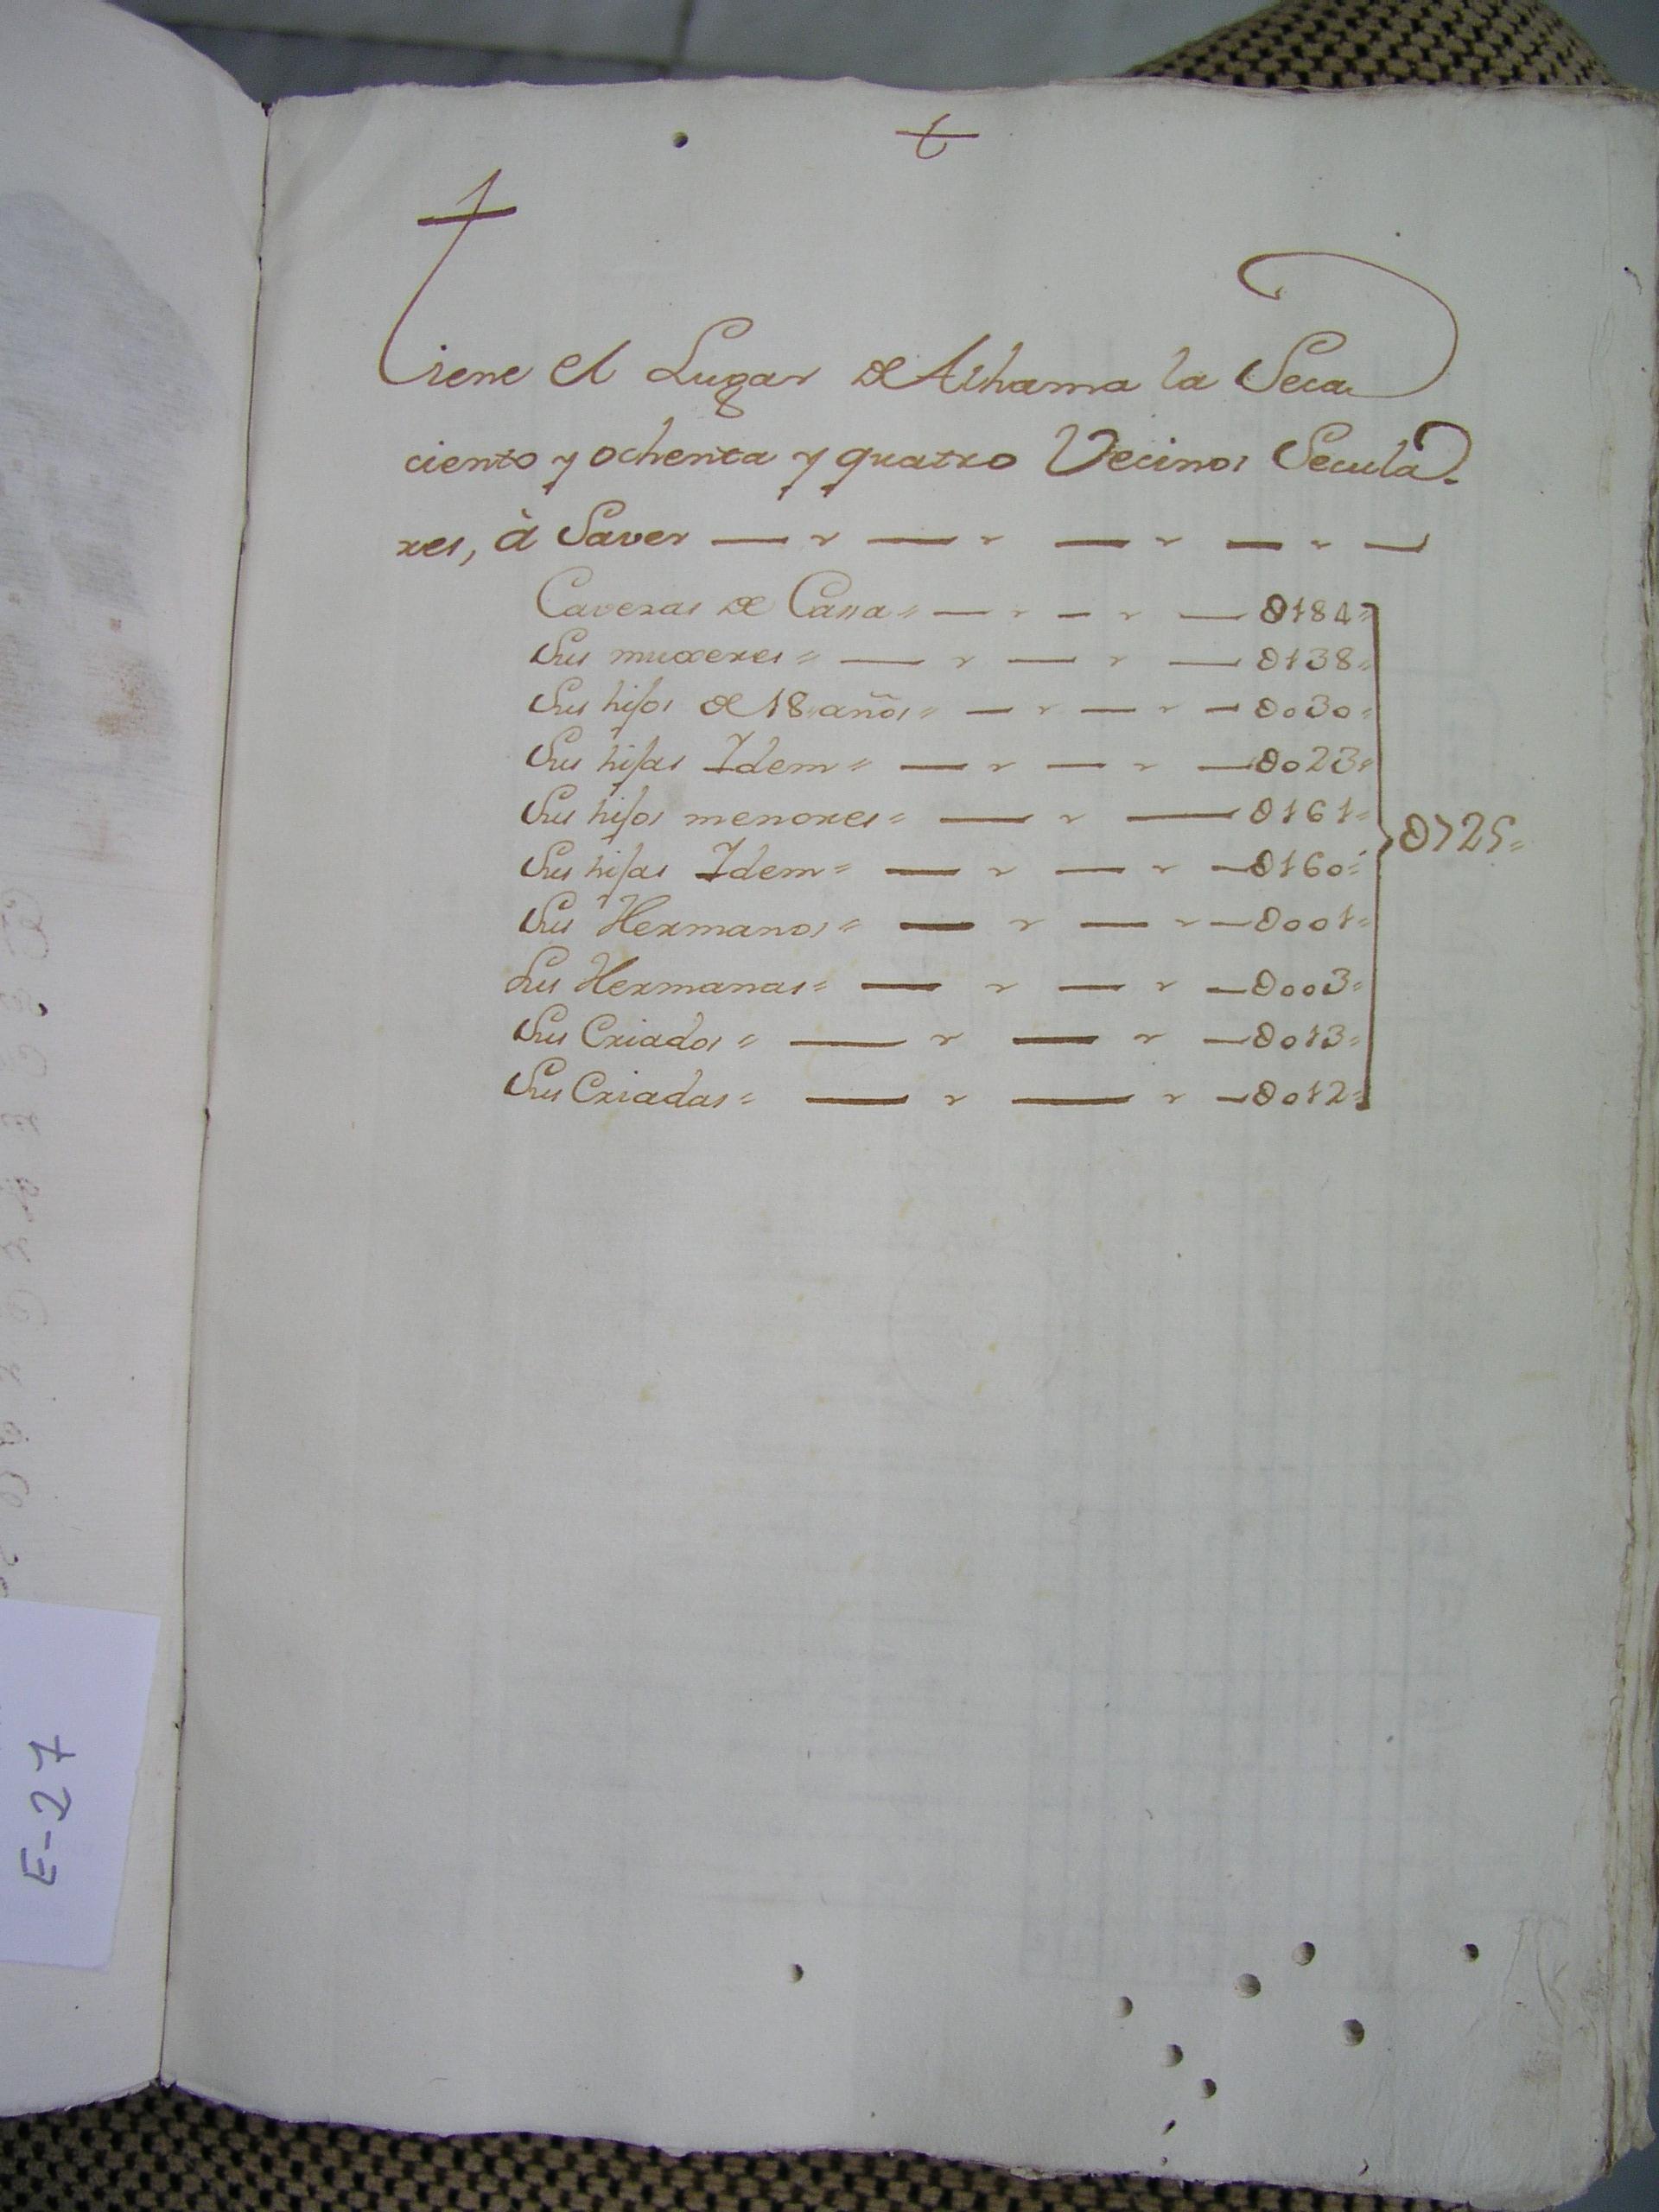 Tiene el Lugar de Alhama la Seca
ciento y ochenta y quatro Vecinos Secula-
res, à Saver
Caveras de Cassa= 0184=
Sus muxeres= 0138=
Sus hijos de 18 años= 0030=
Sus hijas Idem= 0023=
Sus hijos menores= 0161=
Sus hijas Idem= 0160=
0725=
Sus Hermanos= 0001=
Sus Hermanas= 0003=
Sus Criados= 0013=
Sus Criadas= 0012=
E-27